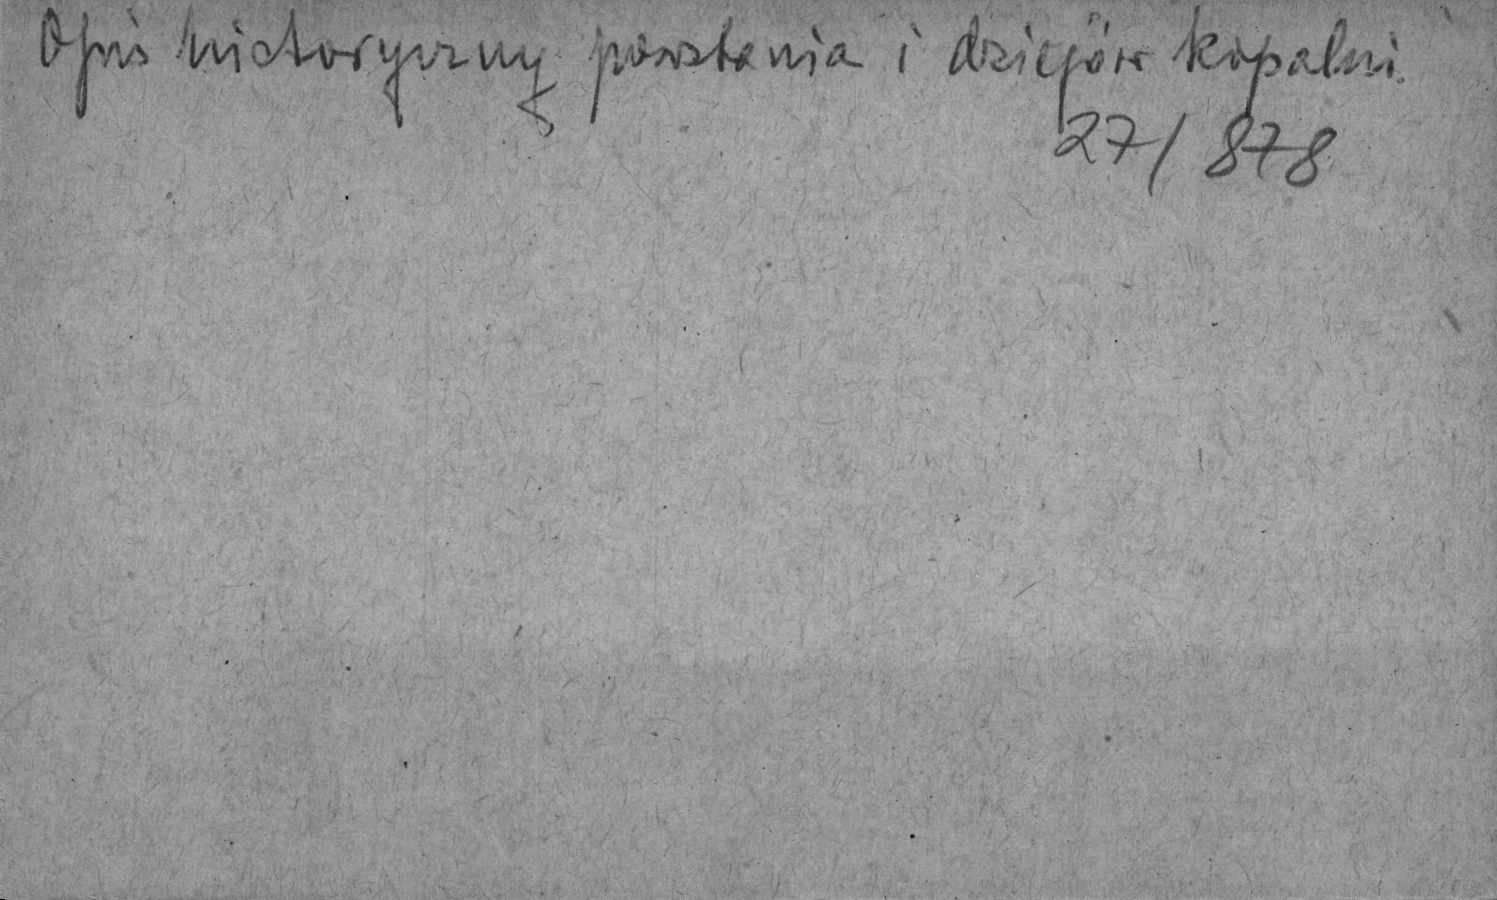 Opis historyczny powstania i dziejów kopalni.
27/878